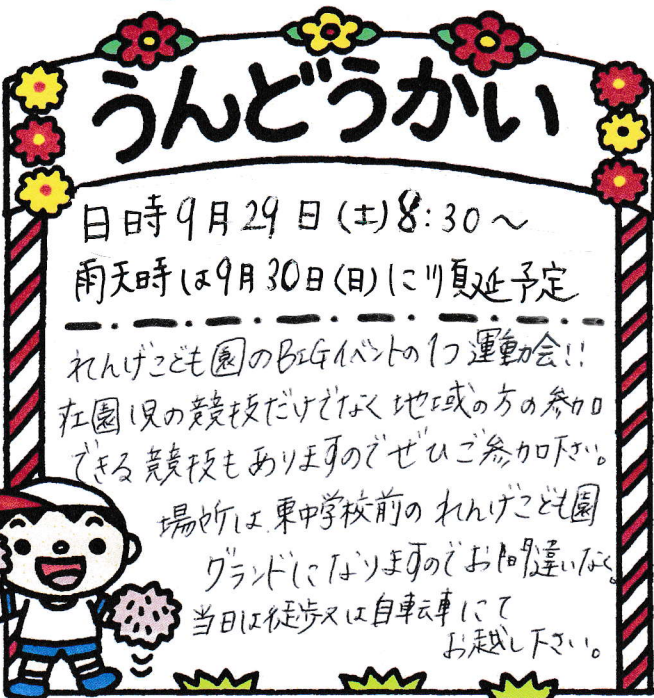 うんどうかい
日時9月29日(土)8:30～
雨天時は9月30日(日)に順延予定
れんげこども園のBIGイベントの1つ運動会!!
在園児の競技だけでなく地域の方の参加
できる競技もありますのでぜひご参加下さい。
場所は東中学校前のれんげこども園
グランドになりますのでお間違いなく。
当日は徒歩又は自転車にて
お越し下さい。